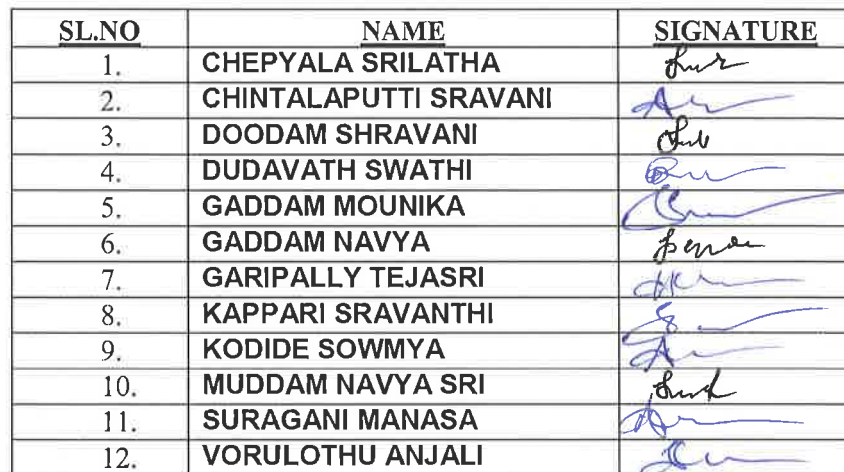 SL.NO NAME SIGNATURE
1. CHEPYALA SRILATHA
2. CHINTALAPUTTI SRAVANI
3. DOODAM SHRAVANI
4. DUDAVATH SWATHI
5. GADDAM MOUNIKA
6. GADDAM NAVYA
7. GARIPALLY TEJASRI
8. KAPPARI SRAVANTHI
9. KODIDE SOWMYA
10. MUDDAM NAVYA SRI
11. SURAGANI MANASA
12. VORULOTHU ANJALI